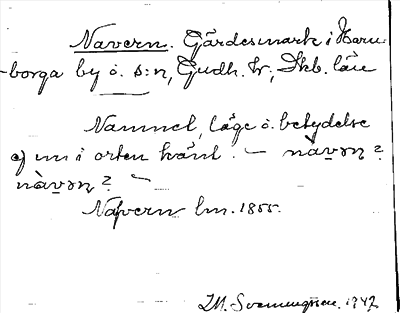 Navern. Gärdesmark i Haru-
borga by o. s:n, Gudh. hr, Skb. län
Namnet, läge o. betydelse
ej nu i orten känt. – nàvən?
nàvən? –
Nafvern lm. 1855.
1947